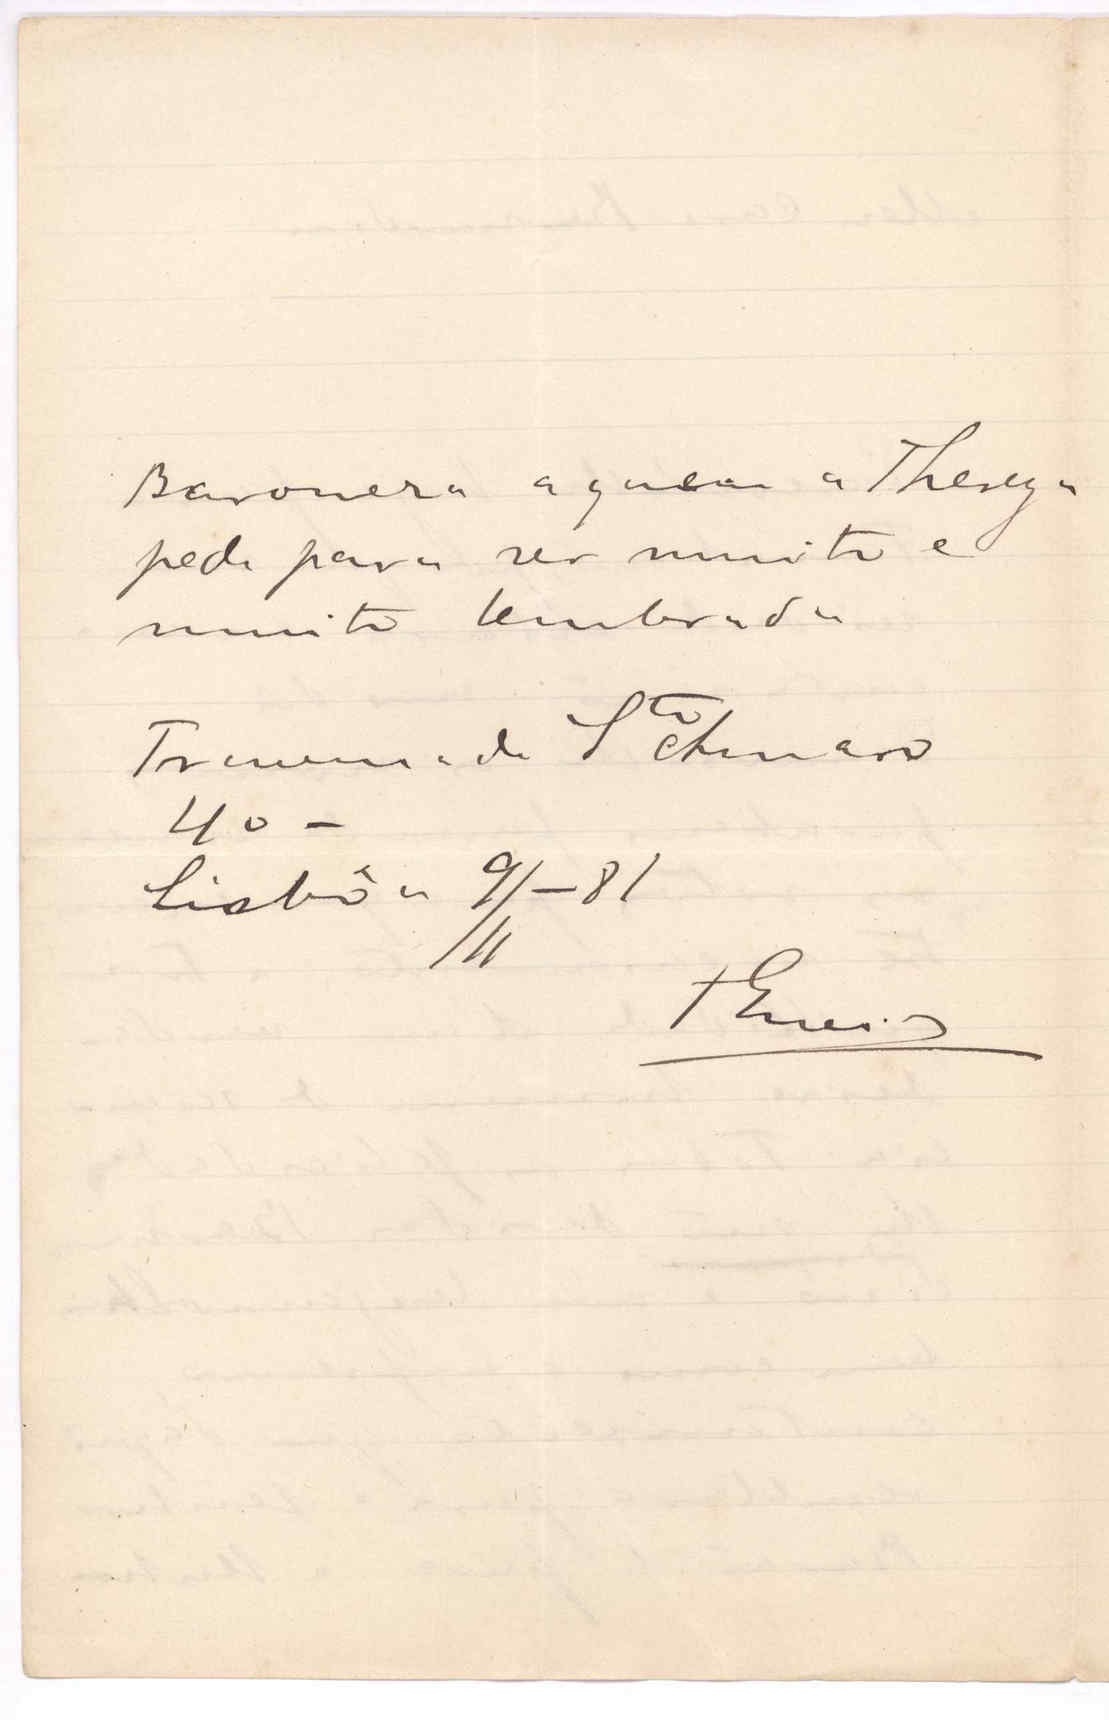 Baroneza a quem a Thereza
pede para ser muito e
muito lembrada
Travessa de Sto Amaro
40 -
Lisbôa 9/11 - 81